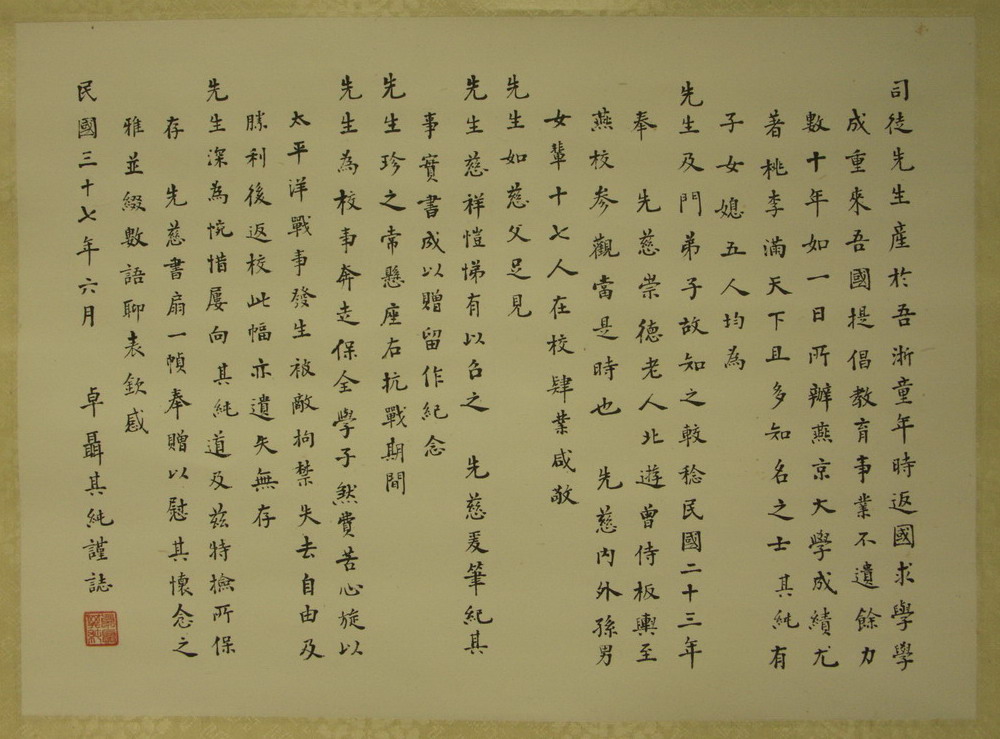 司徒先生産於吾浙童年時返國求學學
成重來吾國提倡教育事業不遺餘力
數十年如一日所辦燕京大學成績尤
著桃李滿天下且多知名之士其純有
子女媳五人均為
先生及門弟子故知之較稔民國二十三年
奉 先慈崇德老人北遊曾侍板輿至
燕校參觀當是時也 先慈內外孫男
女輩十七人在校肆業咸敬
先生如慈父足見
先生慈祥愷悌有以召之 先慈爰筆紀其
事實書成以贈留作紀念
先生珍之常懸座右抗戰期間
先生為校事奔走保全學子煞費苦心旋以
太平洋戰事發生被敵拘禁失去自由及
勝利後返校此幅亦遺失無存
先生深為惋惜屢向其純道及茲特撿所保
存 先慈書扇一幀奉贈以慰其懷念之
雅並綴數語聊表欽感
民國三十七年六月 卓聶其純謹誌